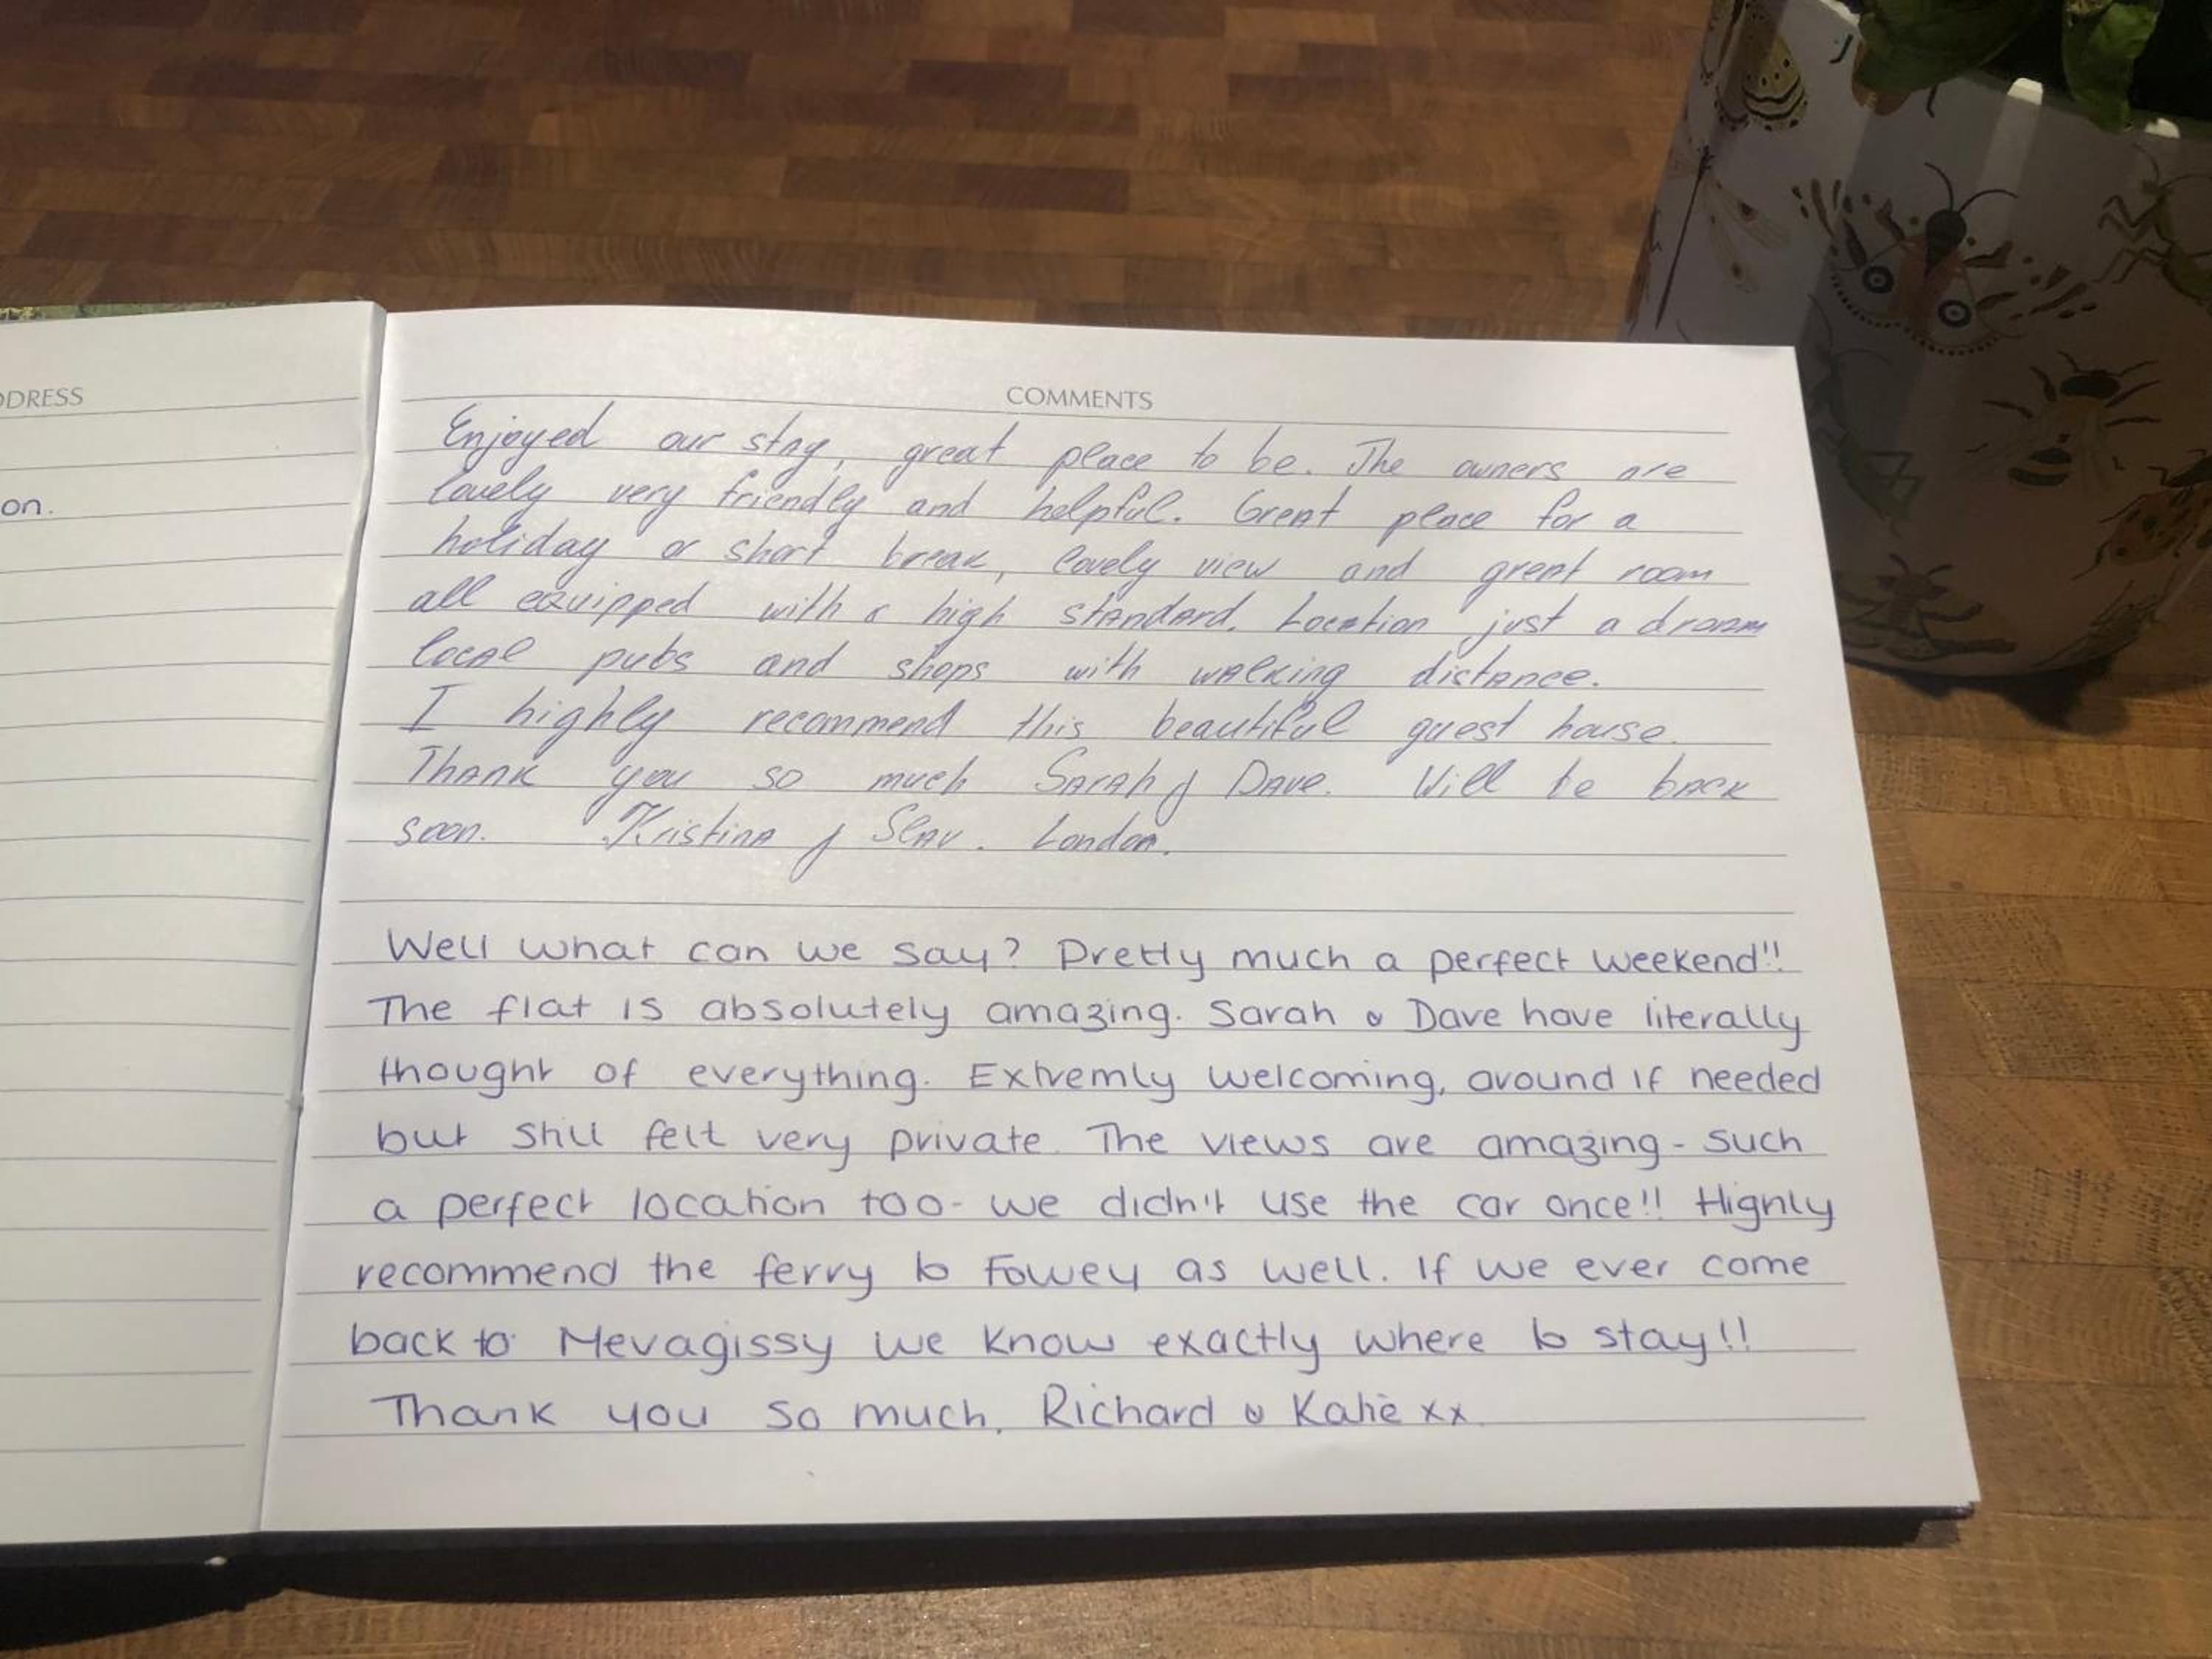 DDRESS
on.
COMMENTS
Enjoyed our stay, great place to be. The owners are
lovely very friendly and helpful. Great place for a
holiday or short break, lovely view and great room
all equipped with a high standard. Location just a dream
local pubs and shops with walking distance.
I highly recommend this beautiful guest house.
Thank you so much Sarah & Dave. Will be back
soon. Kristina & Slav. London.
Well what can we say? Pretty much a perfect weekend!!
The flat is absolutely amazing. Sarah & Dave have literally
thought of everything. Extremly welcoming, around if needed
but still felt very private. The views are amazing - such
a perfect location too - we didn't use the car once!! Highly
recommend the ferry to Fowey as well. If we ever come
back to Mevagissy we know exactly where to stay!!
Thank you so much, Richard & Katie xx